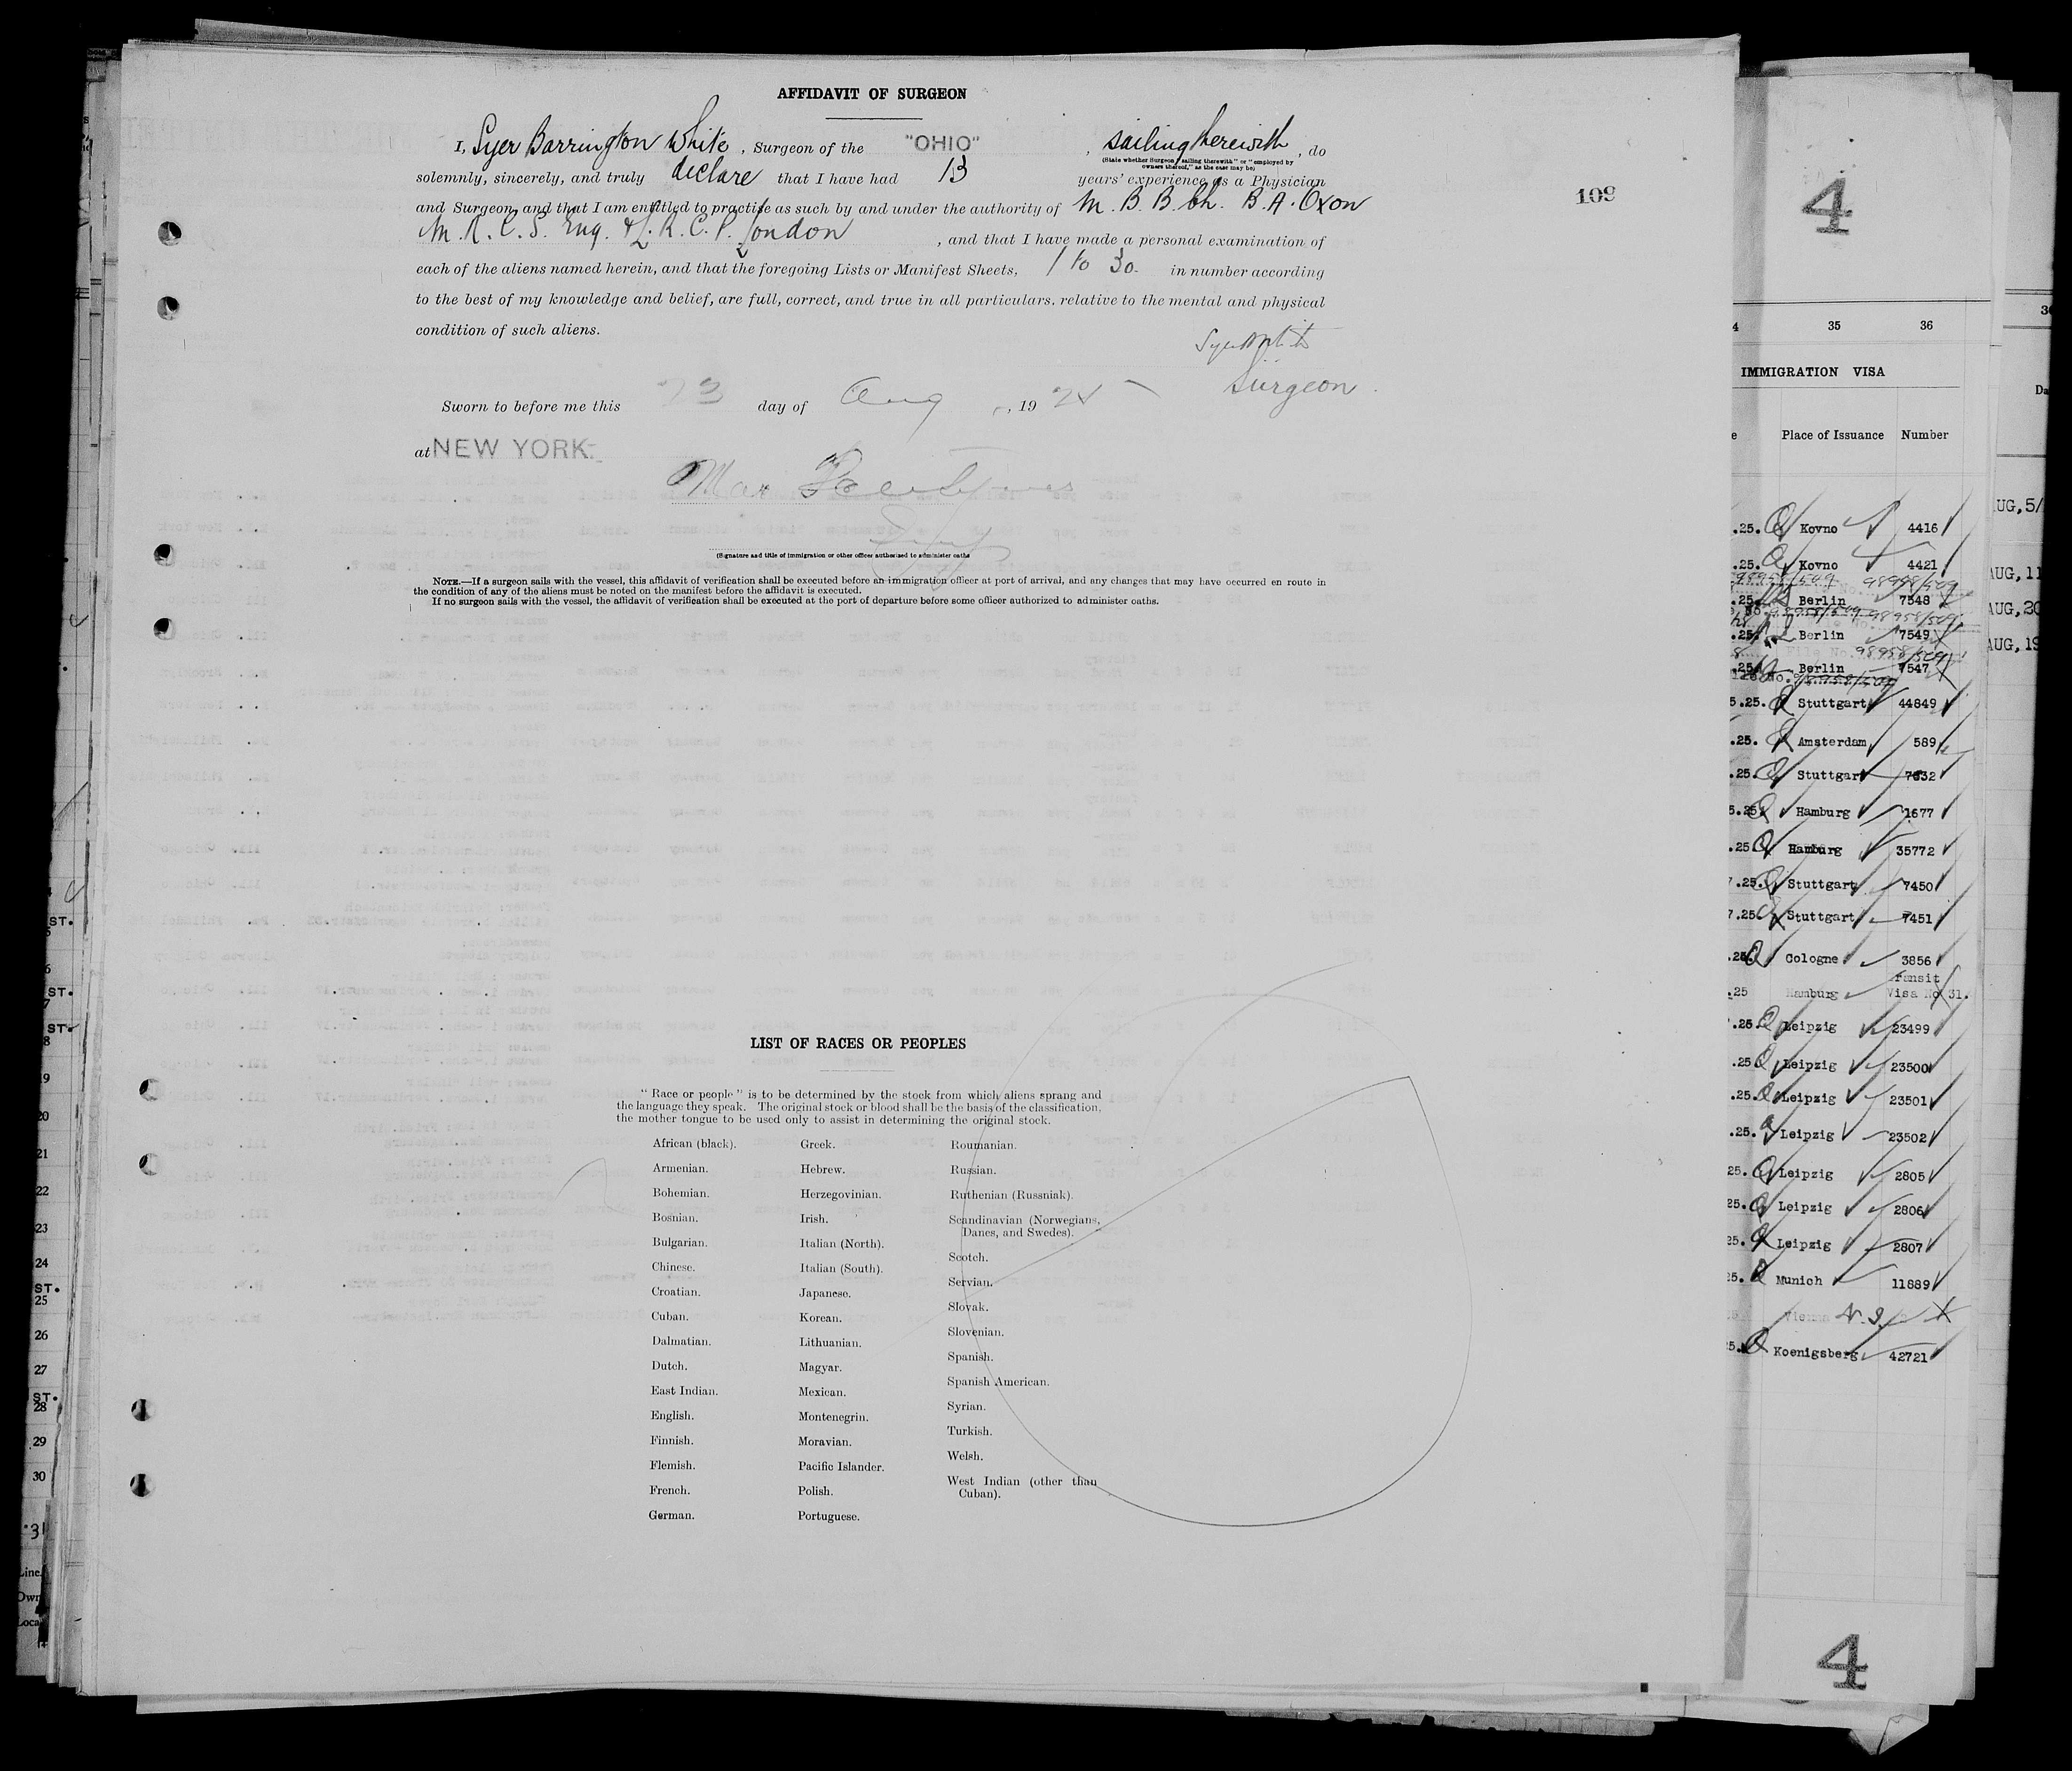 AFFIDAVIT OF SURGEON
I, Syer Barrington White, Surgeon of the "OHIO", sailing therewith, do
(State whether Surgeon "sailing therewith" or "employed by
owners thereof," as the case may be)
solemnly, sincerely, and truly declare that I have had 13 years' experience as a Physician
and Surgeon and that I am entitled to practise as such by and under the authority of M.B.B.Ch. B.A. Oxon
M.R.C.S. Eng. & L.R.C.P. London, and that I have made a personal examination of
each of the aliens named herein, and that the foregoing Lists or Manifest Sheets, 1 to 30. in number according
to the best of my knowledge and belief, are full, correct, and true in all particulars. relative to the mental and physical
condition of such aliens.
Surgeon.
Sworn to before me this 23 day of Aug, 1925
at NEW YORK.
Max
(Signature and title of immigration or other officer authorized to administer oaths
NOTE.—If a surgeon sails with the vessel, this affidavit of verification shall be executed before an immigration officer at port of arrival, and any changes that may have occurred en route in
the condition of any of the aliens must be noted on the manifest before the affidavit is executed.
If no surgeon sails with the vessel, the affidavit of verification shall be executed at the port of departure before some officer authorized to administer oaths.
109
LIST OF RACES OR PEOPLES
"Race or people" is to be determined by the stock from which aliens sprang and
the language they speak. The original stock or blood shall be the basis of the classification,
the mother tongue to be used only to assist in determining the original stock.
African (black).
Armenian.
Bohemian.
Bosnian.
Bulgarian.
Chinese.
Croatian.
Cuban.
Dalmatian.
Dutch.
East Indian.
English.
Finnish.
Flemish.
French.
German.
Greek.
Hebrew.
Herzegovinian.
Irish.
Italian (North).
Italian (South).
Japanese.
Korean.
Lithuanian.
Magyar.
Mexican.
Montenegrin.
Moravian.
Pacific Islander.
Polish.
Portuguese.
Roumanian.
Russian.
Ruthenian (Russniak).
Scandinavian (Norwegians,
Danes, and Swedes).
Scotch.
Servian.
Slovak.
Slovenian.
Spanish.
Spanish American.
Syrian.
Turkish.
Welsh.
West Indian (other than
Cuban).
4
35 36
IMMIGRATION VISA
Place of Issuance Number
.25. Kovno 4416
.25. Kovno 4421
98958/509 98958/509
.25. Berlin 7548
98958/509 98958/509
.25. Berlin 7549
File No. 98958/509
.25. Berlin 7547
No. 98958/509
5.25. Stuttgart 44849
.25. Amsterdam 589
.25. Stuttgart 7632
5.25. Hamburg 1677
.25. Hamburg 35772
7.25. Stuttgart 7450
7.25. Stuttgart 7451
.25. Cologne 3856
.25 Hamburg Transit
Visa No 31.
.25. Leipzig 23499
.25. Leipzig 23500
.25. Leipzig 23501
.25. Leipzig 23502
25. Leipzig 2805
25. Leipzig 2806
25. Leipzig 2807
25. Munich 11889
Vienna
5. Koenigsberg 42721
4
AUG,5/
AUG,11
AUG,20
AUG,19
ST.
ST.
ST.
19
20
21
22
23
24
ST.
25
26
27
ST.
28
29
30